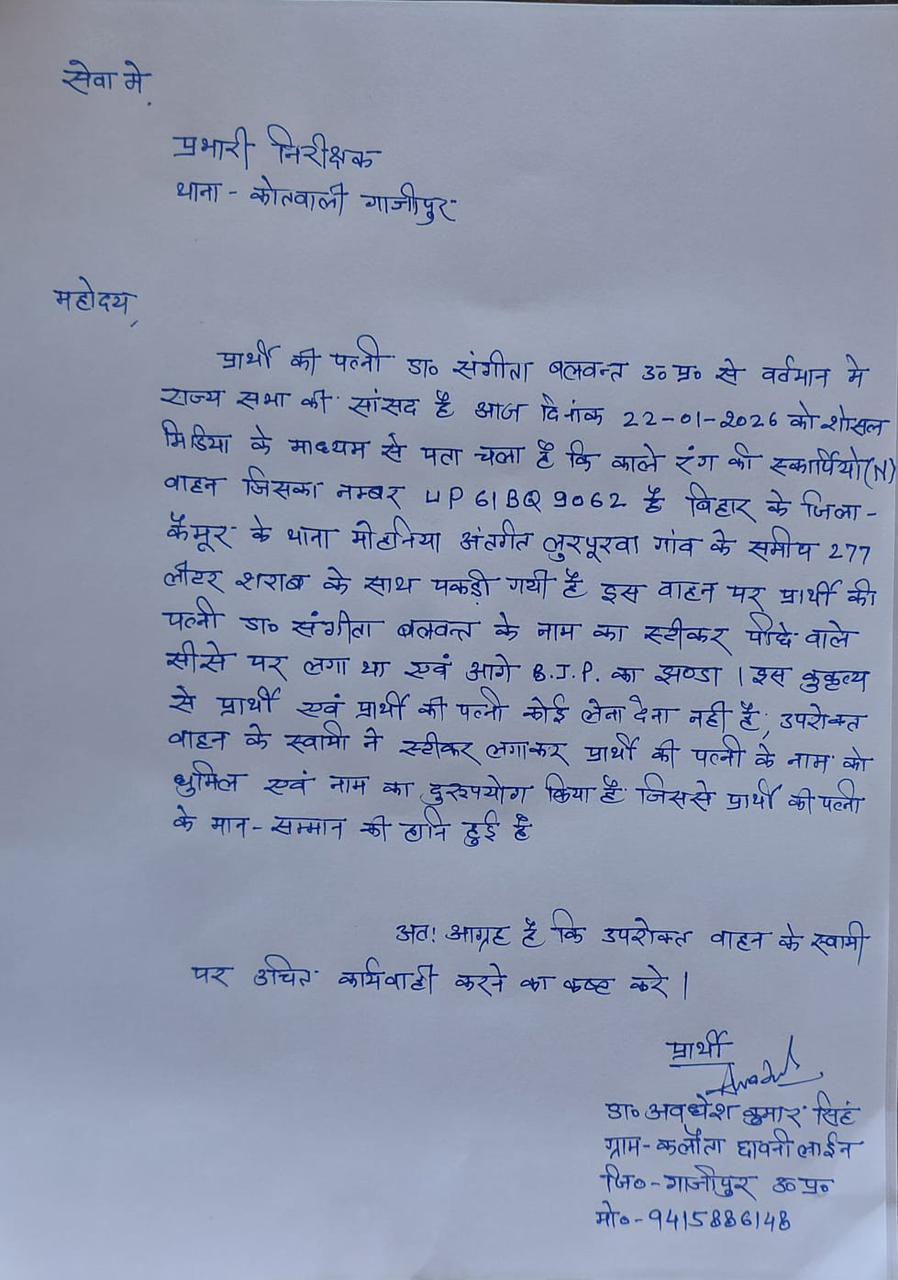 सेवा मे,
प्रभारी निरीक्षक
थाना - कोतवाली गाजीपुर
महोदय,
प्रार्थी की पत्नी डा० संगीता बलवन्त उ०प्र० से वर्तमान मे
राज्य सभा की सांसद है आज दिनांक 22-01-2026 को शोसल
मिडिया के माध्यम से पता चला है कि काले रंग की स्कार्पियो(N)
वाहन जिसका नम्बर UP61BQ9062 है बिहार के जिला-
कैमूर के थाना मोहनिया अंतर्गत लुरपूरवा गांव के समीप 277
लीटर शराब के साथ पकड़ी गयी है इस वाहन पर प्रार्थी की
पत्नी डा० संगीता बलवन्त के नाम का स्टीकर पीछे वाले
सीसे पर लगा था एवं आगे B.J.P. का झण्डा । इस कुकृत्य
से प्रार्थी एवं प्रार्थी की पत्नी कोई लेना देना नही है, उपरोक्त
वाहन के स्वामी ने स्टीकर लगाकर प्रार्थी की पत्नी के नाम को
धुमिल एवं नाम का दुरुपयोग किया है जिससे प्रार्थी की पत्नी
के मान-सम्मान की हानि हुई है
अत: आग्रह है कि उपरोक्त वाहन के स्वामी
पर उचित कार्यवाही करने का कष्ट करे ।
प्रार्थी
डा० अवधेश कुमार सिंह
ग्राम- छावनी लाईन
जि०-गाजीपुर उ०प्र०
मो०-9415886148